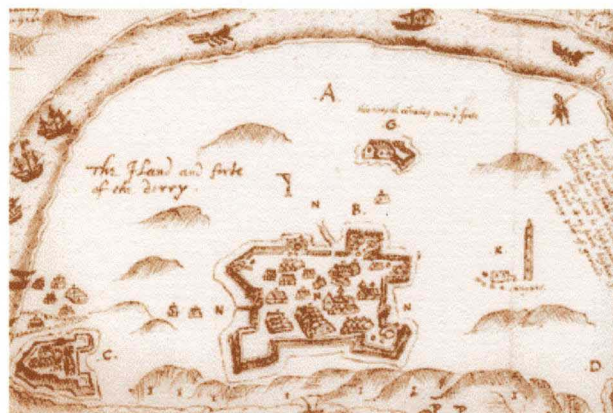 A
G
The Iland and forte
of the derry.
N
B.
K
N
N
N
C.
D